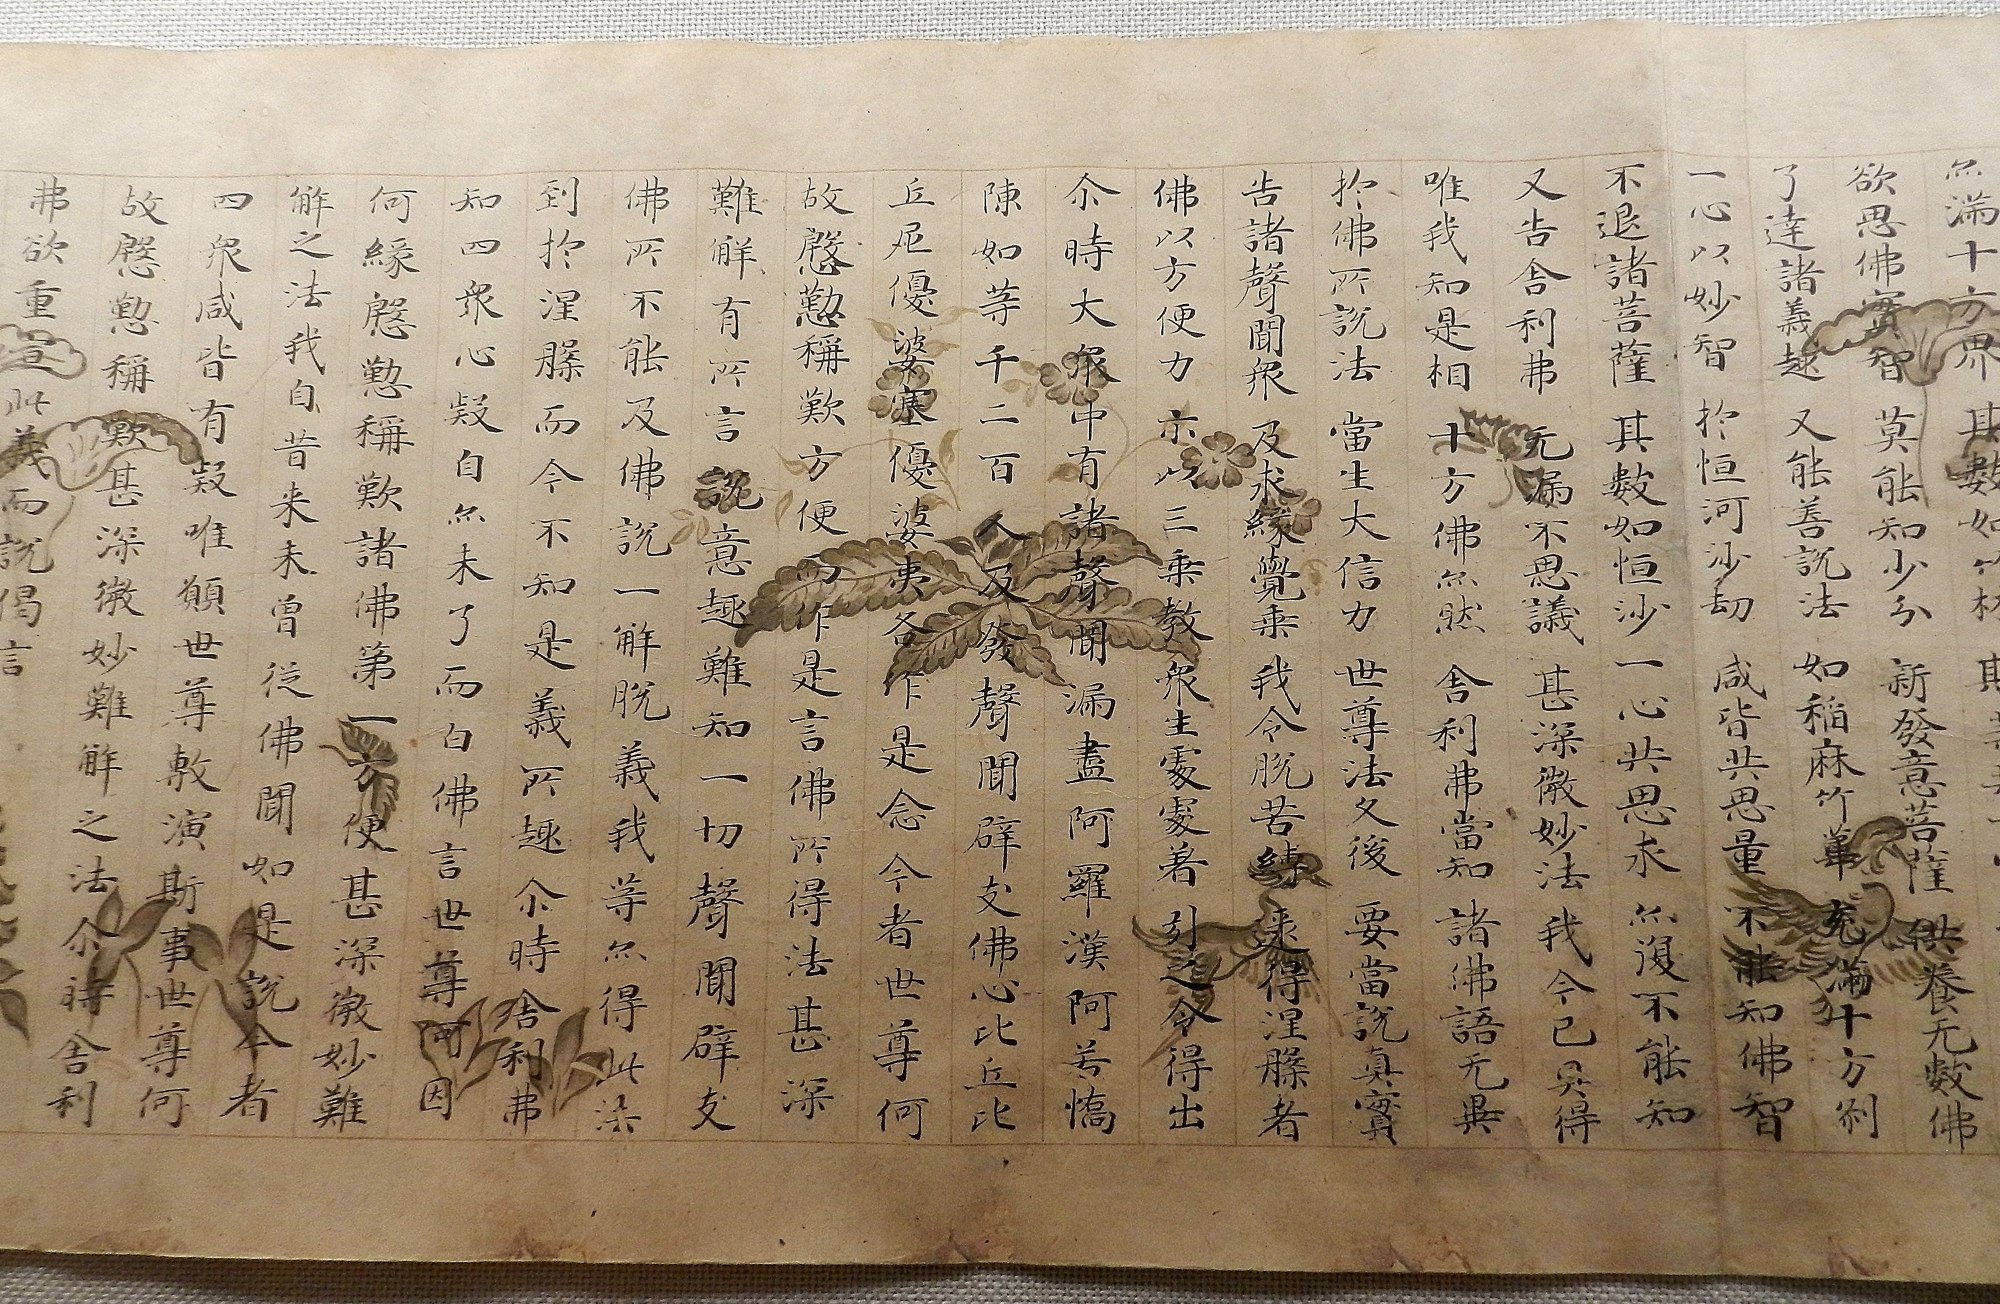 亦滿十方界 其數如竹林
欲思佛實智 莫能知少分 新發意菩薩 供養无數佛
了達諸義趣 又能善說法 如稻麻竹葦 充滿十方剎
一心以妙智 於恒河沙劫 咸皆共思量 不能知佛智
不退諸菩薩 其數如恒沙 一心共思求 亦復不能知
又告舍利弗 无漏不思議 甚深微妙法 我今已具得
唯我知是相 十方佛亦然 舍利弗當知 諸佛語无異
於佛所說法 當生大信力 世尊法久後 要當說真實
告諸聲聞衆 及求緣覺乘 我令脫苦縛 逮得涅槃者
佛以方便力 示以三乘教 衆生處處著 引之令得出
尒時大衆中有諸聲聞漏盡阿羅漢阿若憍
陳如等千二百人及發聲聞辟支佛心比丘比
丘尼優婆塞優婆夷各作是念今者世尊何
故慇懃稱歎方便而作是言佛所得法甚深
難解有所言說意趣難知一切聲聞辟支
佛所不能及佛說一解脫義我等亦得此法
到於涅槃而今不知是義所趣尒時舍利弗
知四衆心疑自亦未了而白佛言世尊何因
何緣慇懃稱歎諸佛第一方便甚深微妙難
解之法我自昔來未曾從佛聞如是說今者
四衆咸皆有疑唯願世尊敷演斯事世尊何
故慇懃稱歎甚深微妙難解之法尒時舍利
弗欲重宣此義而說偈言